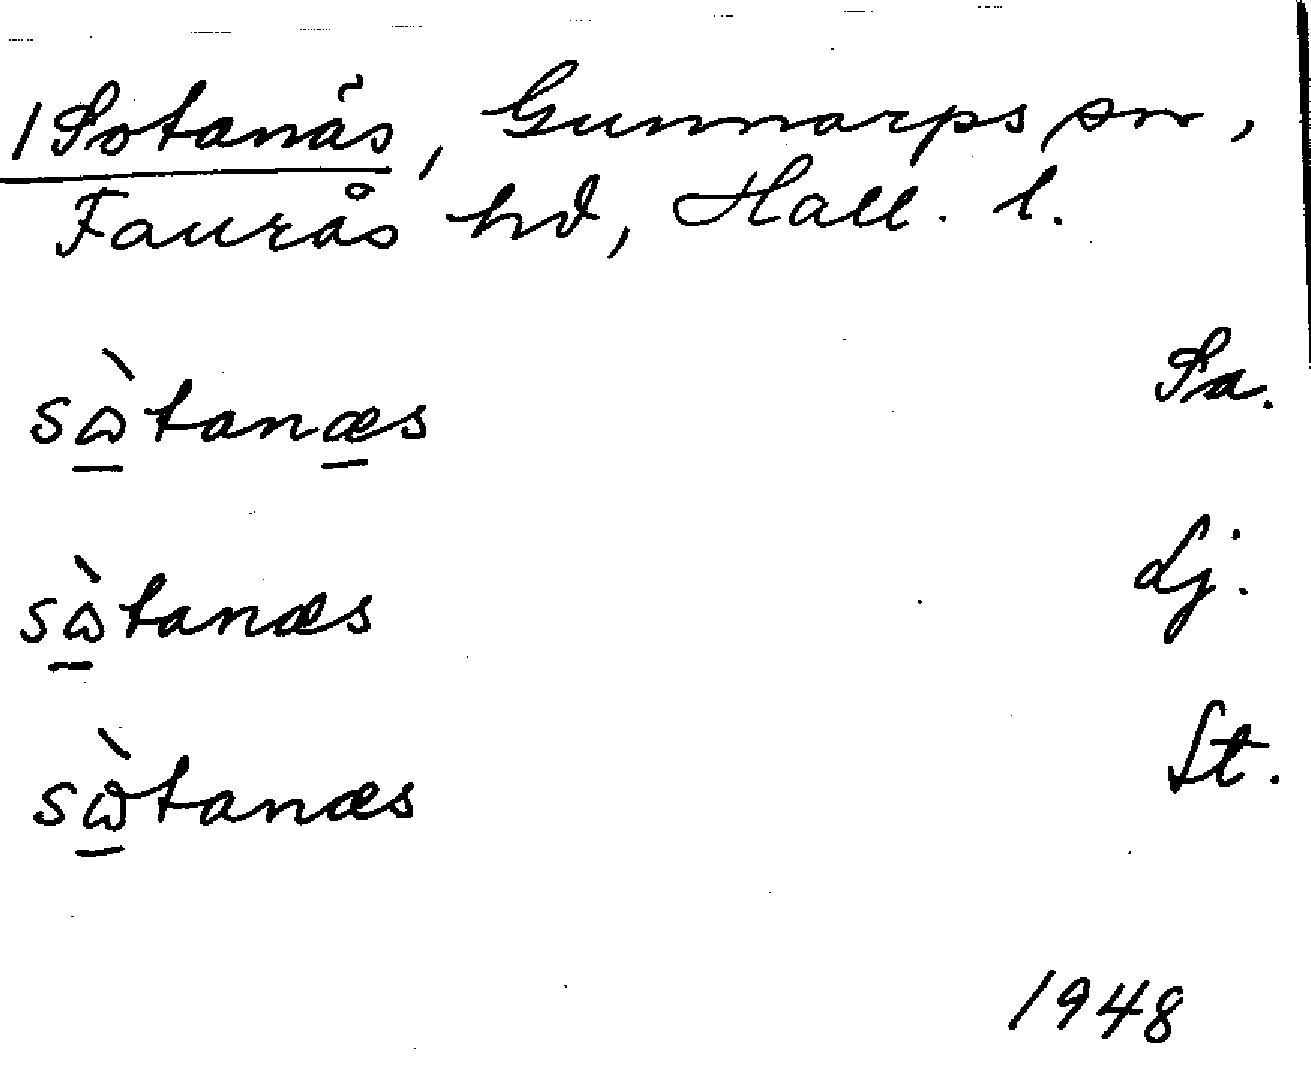 1 Sotanäs, Gunnarps sn,
Faurås hd, Hall. l.
sɷ̀tanæs Sa.
sɷ̀tanæs Lj.
sɷ̀tanæs St.
1948